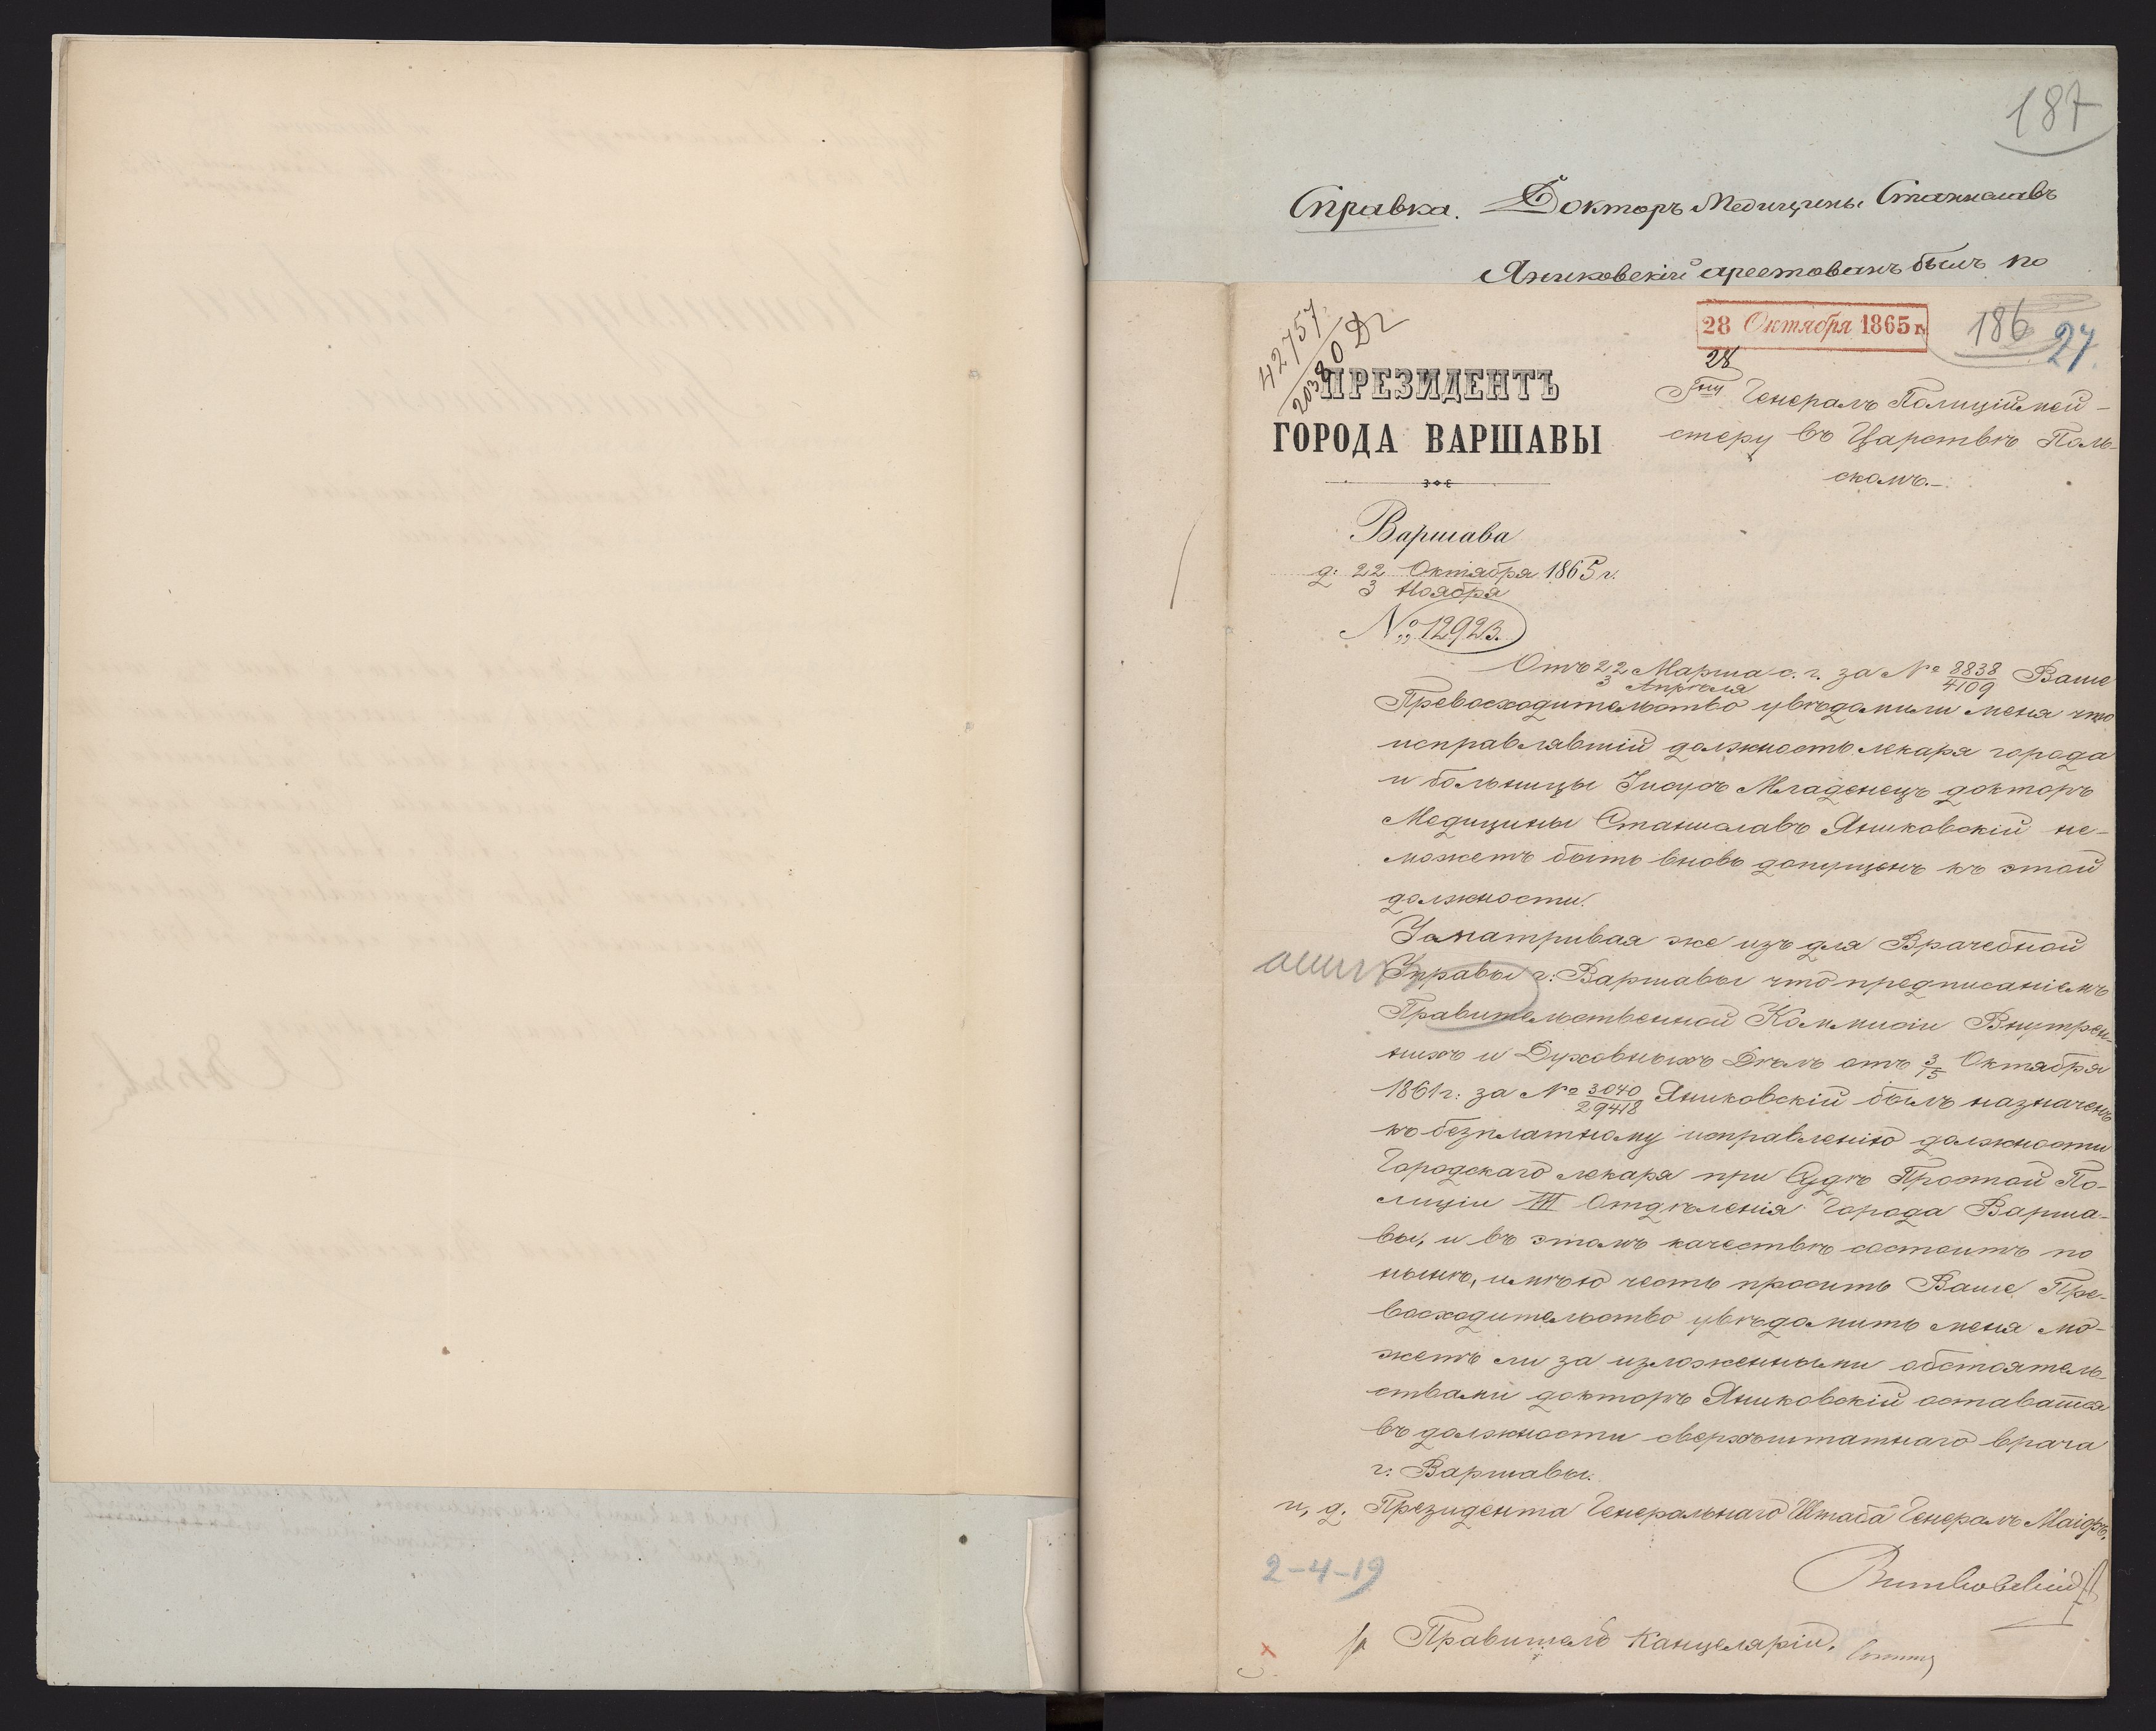 187
Справка. Докторъ Медицины Станиславъ
Яниковскій арестованъ былъ по
42757
20380
28 Октября 1865 г.
186 27.
28
ПРЕЗИДЕНТЪ
ГОРОДА ВАРШАВЫ
Гну Генералъ Полиціймей-
стеру въ Царствѣ Поль-
скомъ.-
Варшава
д: 22 Октября 1865 г.
3 Ноября
№ 12923.
Отъ 22 Марта с. г. за № 8838 Ваше
3 Апрѣля 4109
Превосходительство увѣдомили меня что
исправлявшій должность лекаря города
и больницы Іисусъ Младенецъ докторъ
Медицины Станиславъ Яниковскій не-
можетъ быть вновь допущенъ къ этой
должности.
Усматривая же изъ дѣла Врачебной
Управы г: Варшавы что предписаніемъ
Правительственной Коммисіи Внутрен-
нихъ и Духовныхъ Дѣлъ отъ 3/15 Октября
1861 г: за № 3040/29418 Яниковскій былъ назначенъ
къ безплатному исправленію должности
Городскаго лекаря при Судѣ Простой По-
лиціи III Отдѣленія Города Варша-
вы, и въ этомъ качествѣ состоитъ по
нынѣ, имѣю честь просить Ваше Пре-
восходительство увѣдомить меня мо-
жетъ ли за изложенными обстоятель-
ствами докторъ Яниковскій оставатся
въ должности сверхштатнаго врача
г: Варшавы.
и, д. Президента Генеральнаго Штаба Генералъ Маіоръ,
Витковскій
2-4-19
Правитель Канцеляріи,